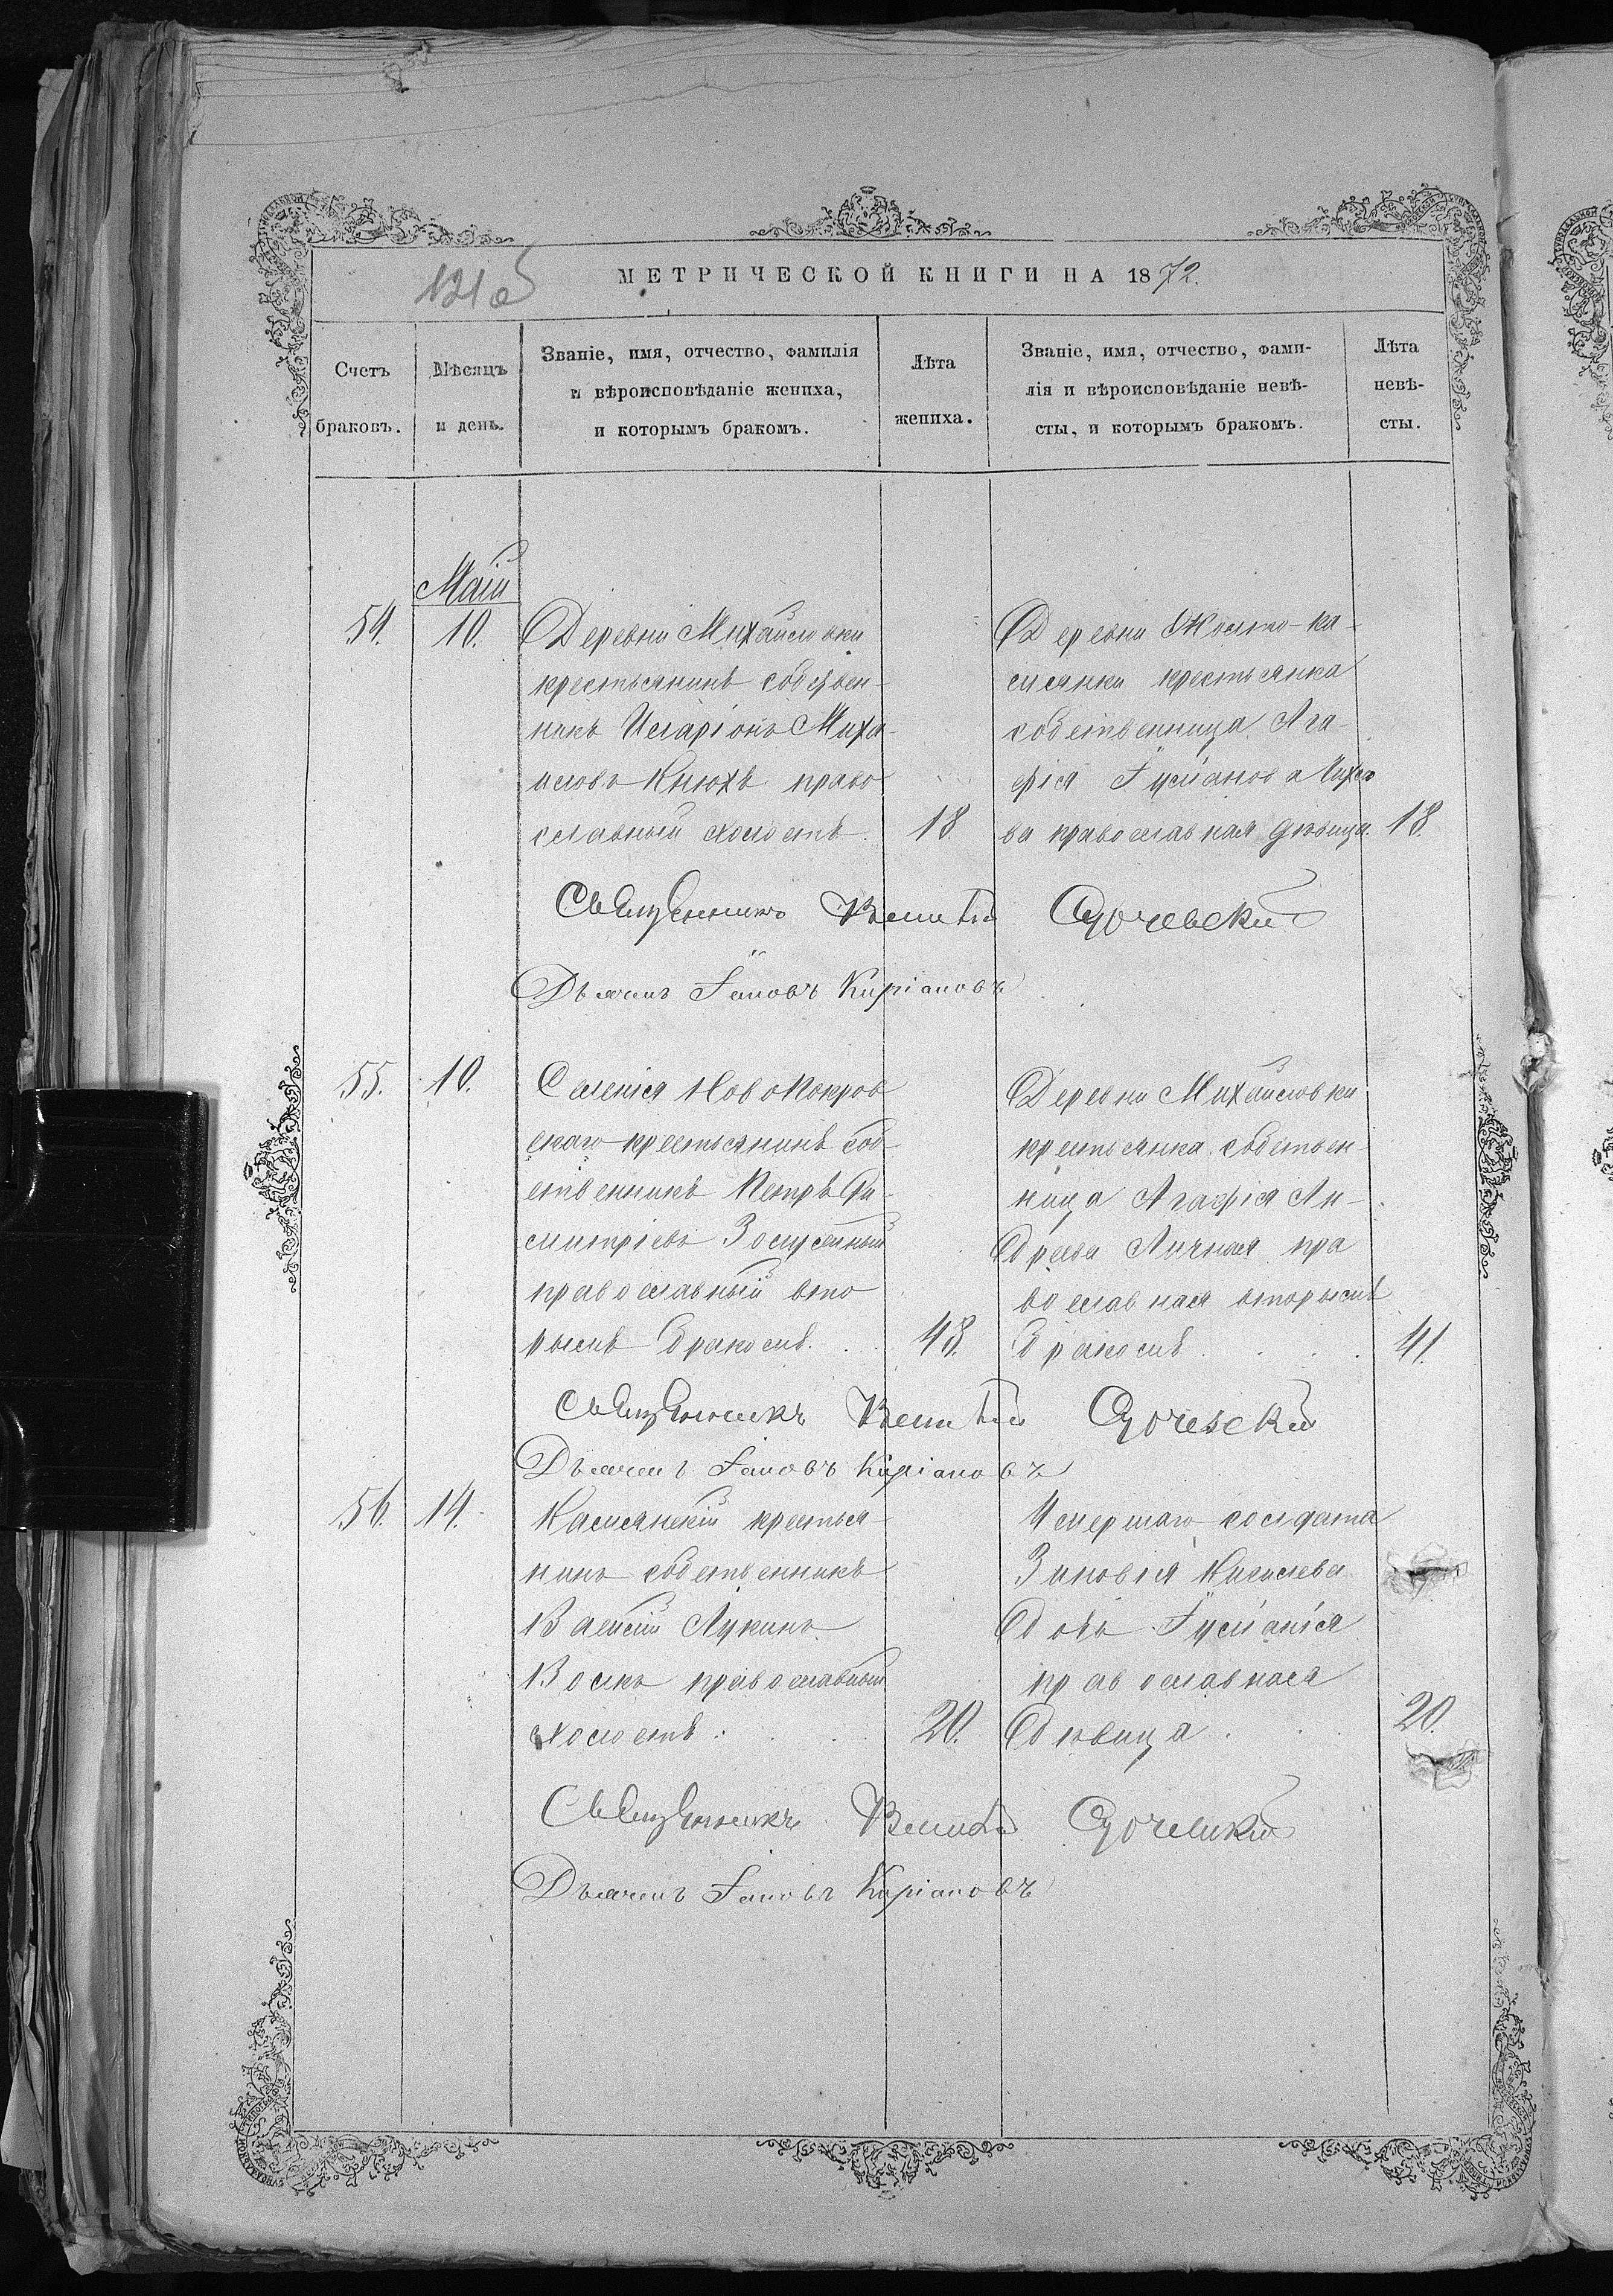 121об
МЕТРИЧЕСКОЙ КНИГИ НА 1872.
Счетъ браковъ.
Мѣсяцъ и день.
Званіе, имя, отчество, фамилія
и вѣроисповѣданіе жениха,
и которымъ бракомъ.
Лѣта жениха.
Званіе, имя, отчество, фами-
лія и вѣроисповѣданіе невѣ-
сты, и которымъ бракомъ.
Лѣта невѣ-
сты.
Маій
54. 10.
Деревни Михайловки
крестьянинъ собствен-
никъ Иларіонъ Миха-
иловъ Кнюхъ право
славный холостъ. 18.
Деревни
крестьянка
собственница Ага-
фія
ва православная дѣвица 18.
Священникъ
Дьячекъ Іаковъ Кипріановъ
55. 10.
Селенія Новопокров
скаго крестьянинъ соб-
ственникъ Петръ Ди-
митріевъ
православный вто
рымъ бракомъ. 43.
Деревни Михайловки
крестьянка собствен-
ница Агафія Ан-
дреева Личная пра
вославная вторымъ
бракомъ 41.
Священникъ
Дьячекъ Іаковъ Кипріановъ
56. 14.
крестья-
нинъ собственникъ
Василій Лукинъ
Волкъ православный
холостъ. 20.
Умершаго солдата
Зиновія Киселева
дочь Іуліанія
православная
дѣвица 20.
Священникъ
Дьячекъ Іаковъ Кипріановъ